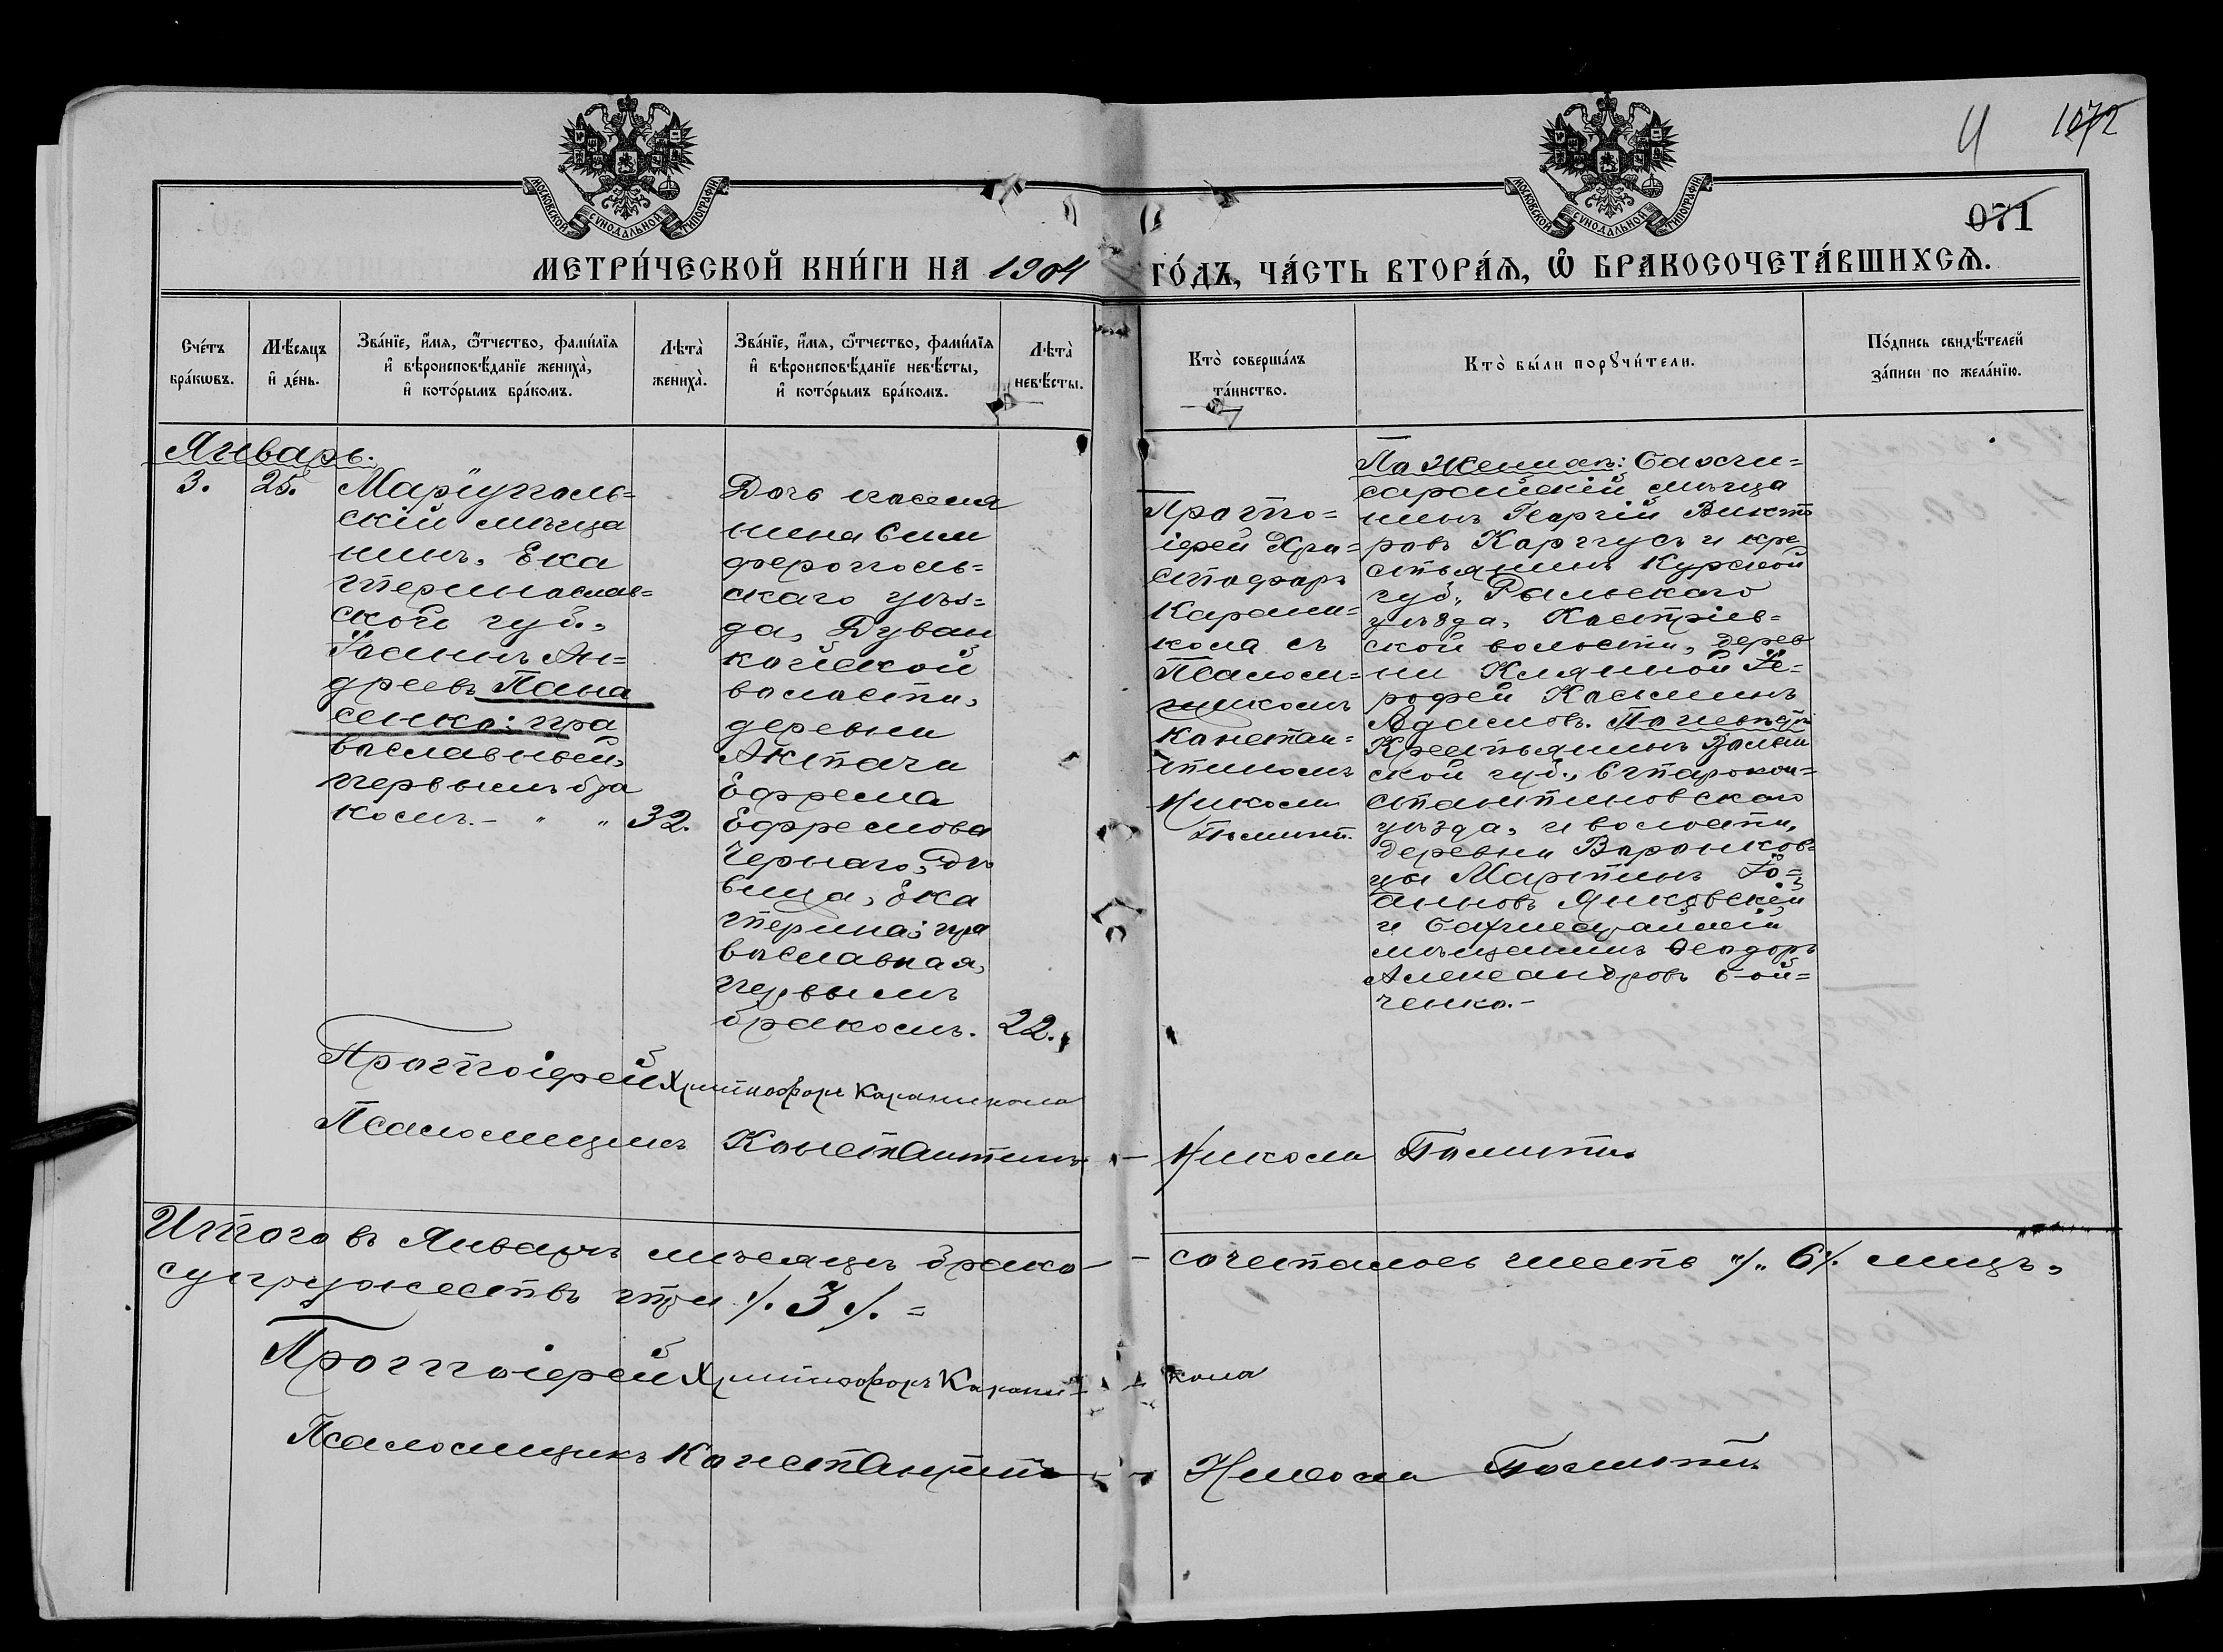 И 1072
МОСКОВСКОЙ СѴНОДАЛЬНОЙ ТИПОГРАФІИ
МОСКОВСКОЙ СѴНОДАЛЬНОЙ ТИПОГРАФІИ
071
МЕТРИ́ЧЕСКОЙ КНИ́ГИ НА 1904 ГО́ДЪ, ЧА́СТЬ ВТОРА́Ѧ, Ѡ҆ БРАКОСОЧЕТА́ВШИХСѦ.
Сче́тъ
бра́кѡвъ.
Мѣ́сяцъ
и҆ де́нь.
Зва́нїе, и҆́мя, ѻ҆́тчество, фами́лїя
и҆ вѣроисповѣ́данїе жениха̀,
и҆ кото́рымъ бра́комъ.
Лѣта̀
жениха̀.
Зва́нїе, и҆́мя, ѻ҆́тчество, фами́лїя
и҆ вѣроисповѣ́данїе невѣ́сты,
и҆ кото́рымъ бра́комъ.
Лѣта̀
невѣ́сты.
Кто̀ соверша́лъ
та́инство.
Кто̀ бы́ли порꙋчи́тели.
По́дпись свидѣ́телей
за́писи по жела́нїю.
Январь.
3. 25.
Маріуполь=
скій мѣща
нинъ, Ека
теринослав=
ской губ.,
Іоаннъ Ан=
дреевъ Пана
сенко: пра
вославный,
первымъ бра
комъ. - " " 32.
Дочь поселя
нина Сим
ферополь=
скаго уѣз=
да, Дуван
койской
волости,
деревни
Актачи
Ефрема
Ефремова
Чернаго, дѣ
вица, Ека
терина; пра
вославная,
первымъ
бракомъ. 22.
Прото=
іерей Хри=
стофоръ
Карани=
кола съ
Псалом=
щикомъ
Констан=
тиномъ
Николи
По Женихѣ: Бахчи=
сарайскій мѣща
нинъ Георгій Викто
ровъ Каргусъ и кре
стьянинъ Курской
губ., Рыльскаго
уѣзда,
ской волости, дерев
ни Іе=
рофей Косьминъ
Адамовъ. По невѣстѣ
Крестьянинъ Волын
ской губ., Старокон=
стантиновскаго
уѣзда, и волости,
деревни Воронков=
цы Мартинъ Іо=
анновъ Янковскій
и Бахчисарайскій
мѣщанинъ Ѳеодоръ
Александровъ Бой=
ченко.-
Протоіерей Христофоръ Караникола
Псаломщикъ Константинъ - Николи
Итого въ Январѣ мѣсяцѣ брако - сочеталось шесть ./. 6 ./. лицъ,
супружествъ три ./. 3 ./. =
Протоіерей Христофоръ Карани - кола
Псаломщикъ Константинъ - Николи